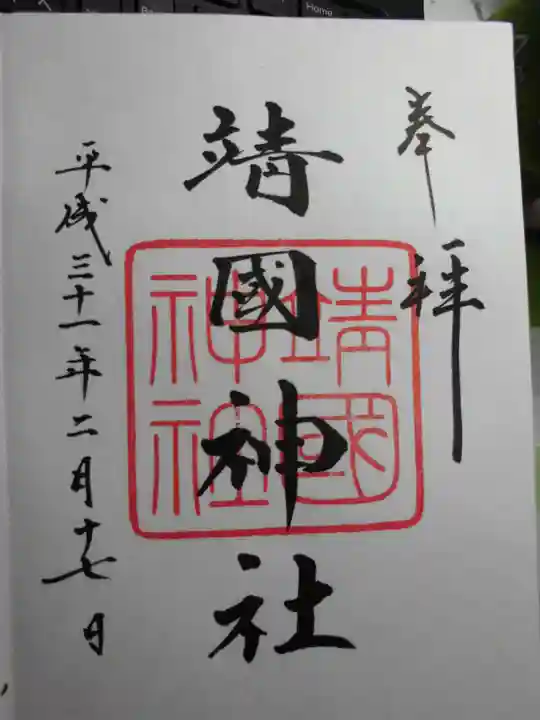 奉拝
靖國神社
靖國神社
平成三十一年二月十七日
Home